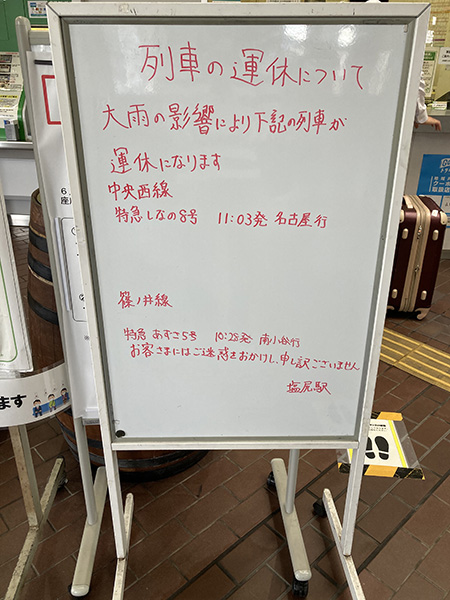 列車の運休について
大雨の影響により下記の列車が
運休になります
中央西線
特急しなの8号 11:03発 名古屋行
篠ノ井線
特急 あずさ5号 10:28発 南小谷行
お客さまにはご迷惑をおかけし、申し訳ございません
塩尻駅
ます